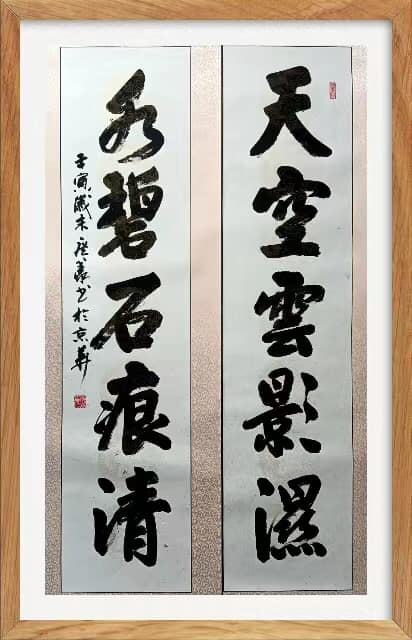 天空雲影濕
水碧石痕清
寅歲末 書於京華